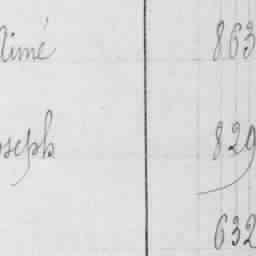 Aimé 863
Joseph 829
632